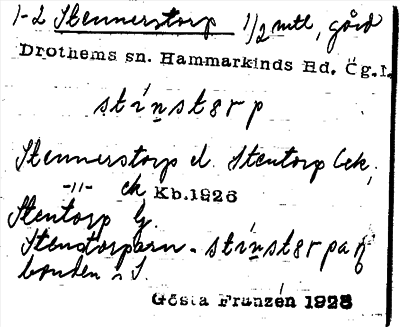 1-2 Stennerstorp 1/2 mtl, gård
Drothems sn. Hammarkinds Hd. Ög.l.
stínstərp
Stennerstorp el. Stentorp Cek,
-"- ek Kb.1926
Stentorp G.
Stenstorparn - stínstərpaṇ
bonden i S.
Gösta Franzén 1928